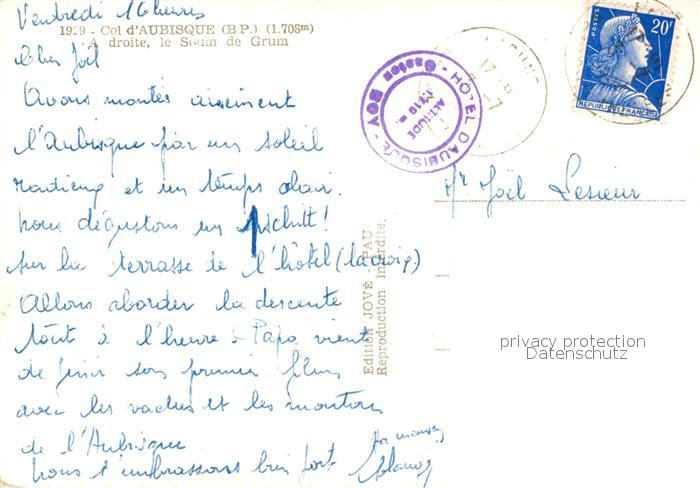 Vendredi 16 heures
1929 - Col d'AUBISQUE (B.P.) (1.708m)
A droite, le Soum de Grum
Cher Joël
Avons montés aisément
l'Aubisque par un soleil
radieux et un temps clair.
nous dégustons un schitt!
sur la terrasse de l'hôtel (la croix)
Allons aborder la descente
tout à l'heure Papa vient
de finir son premier film
avec les vaches et les moutons
de l'Aubisque
nous t'embrassons bien fort
ta maman
HÔTEL D'AUBISQUE - Gaston BOY -
ALTITUDE
1710 m.
POSTES
20F
REPUBLIQUE FRANÇAISE
Mr Joël Lesieur
Edition JOVÉ - PAU
Reproduction interdite.
privacy protection
Datenschutz